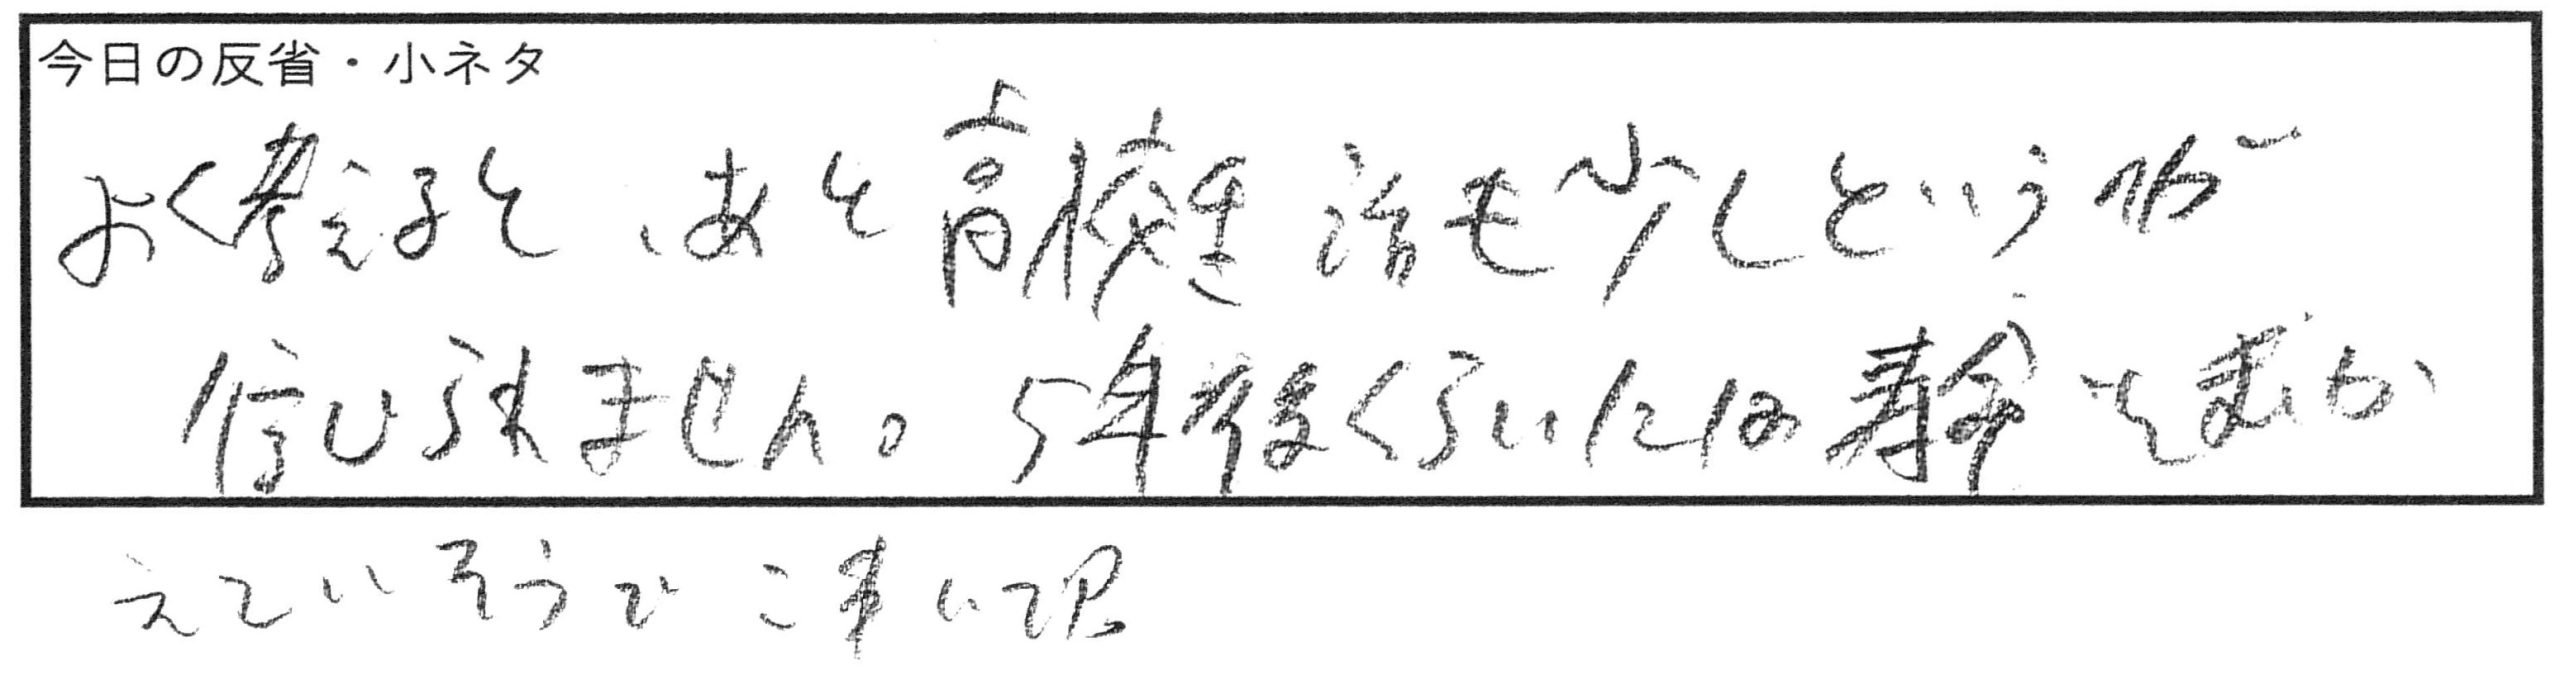 今日の反省・小ネタ
よく考えると、あと高校生活も少しというのが
信じられません。5年後くらいには寿命をむか
えていそうでこわいです